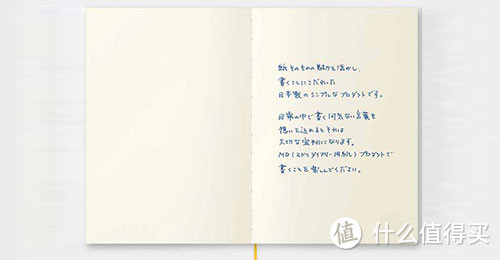 紙そのものの魅力を活かし、
書くことにこだわった
日本製のシンプルなプロダクトです。
日常の中で書く何気ない言葉を
想いを込めるとそれは
大切な宝物になります。
MD(ミドリダイアリー用紙)プロダクトで
書くことを楽しんでください。
值 什么值得买